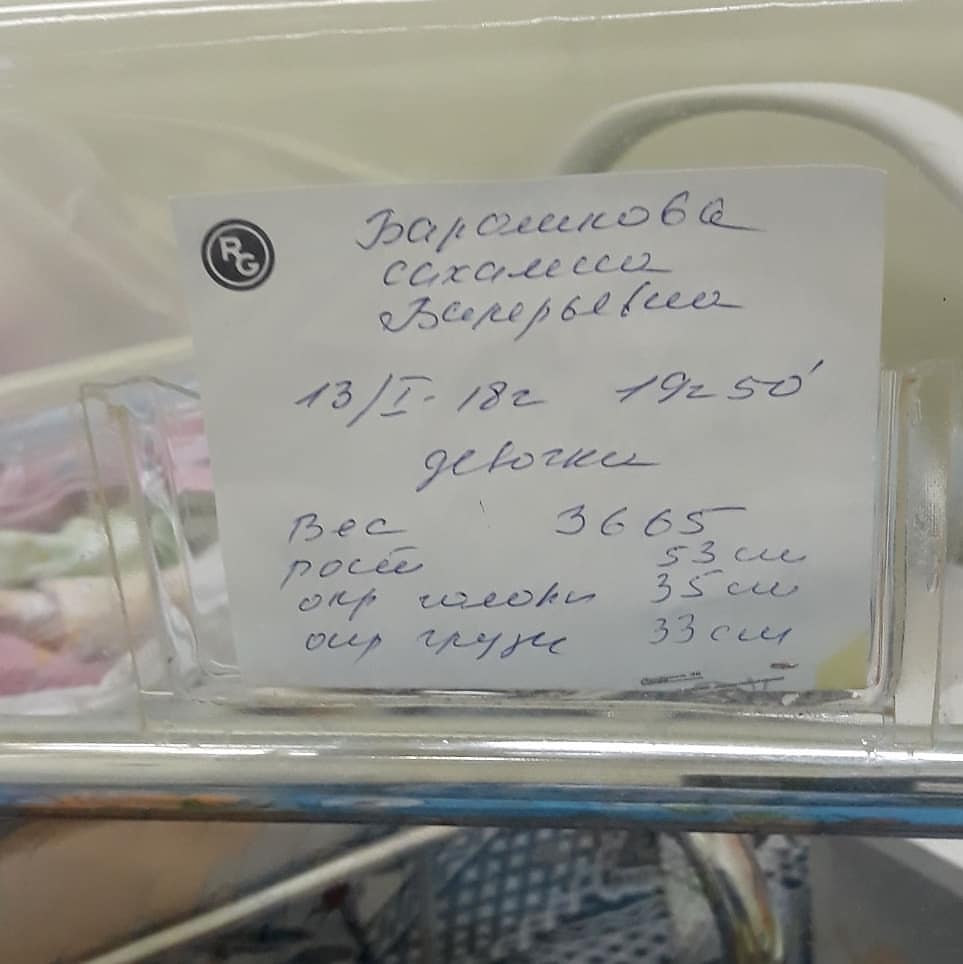 RG
Барашкова
Валерьевна
13/I-18г 19ч 50'
девочка
Вес 3665
рост 53 см
окр головы 35 см
окр груди 33 см